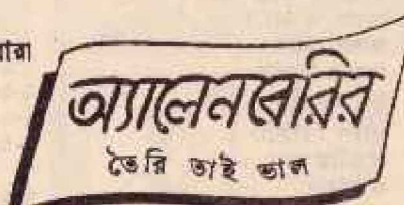 অ্যালেনবেরির
তৈরি তাই ভাল